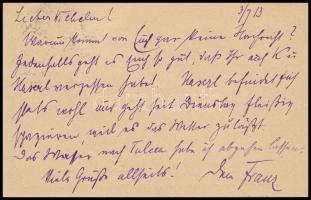 3/7 13
Lieber Wilhelm!
Warum kommt von Euch gar keine Nachricht?
Jedenfalls geht es Euch so gut, daß Ihr auf K u
Kascel vergessen habet. Kascel befindet sich
stets wohl und geht seit Dienstag fleißig
spazieren, weil es das Wetter zuläßt.
Das Wasser nach Tulcea habe ich abgehen lassen.
Viele Grüße allseits! Dein Franz